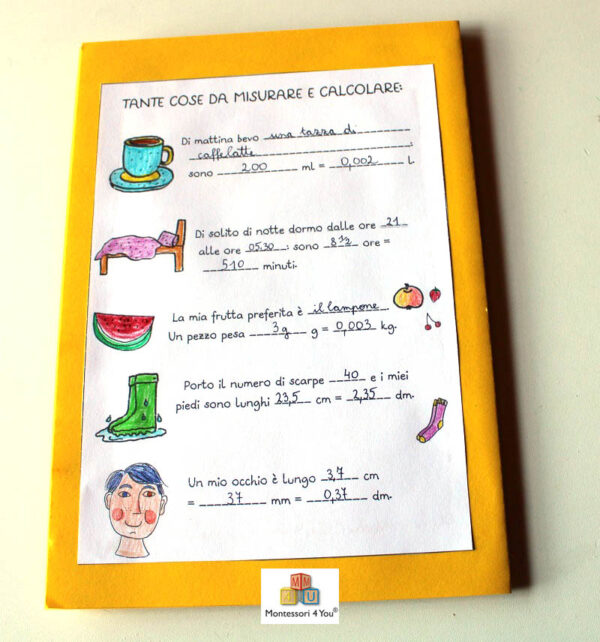 TANTE COSE DA MISURARE E CALCOLARE:
Di mattina bevo una tazza di
caffelatte:
sono 200 ml = 0,002 l.
Di solito di notte dormo dalle ore 21
alle ore 05.30: sono 8 1/2 ore =
510 minuti.
La mia frutta preferita è il lampone.
Un pezzo pesa 3g g = 0,003 kg.
Porto il numero di scarpe 40 e i miei
piedi sono lunghi 23,5 cm = 2,35 dm.
Un mio occhio è lungo 3,7 cm
= 37 mm = 0,37 dm.
M M
4 U
Montessori 4 You®